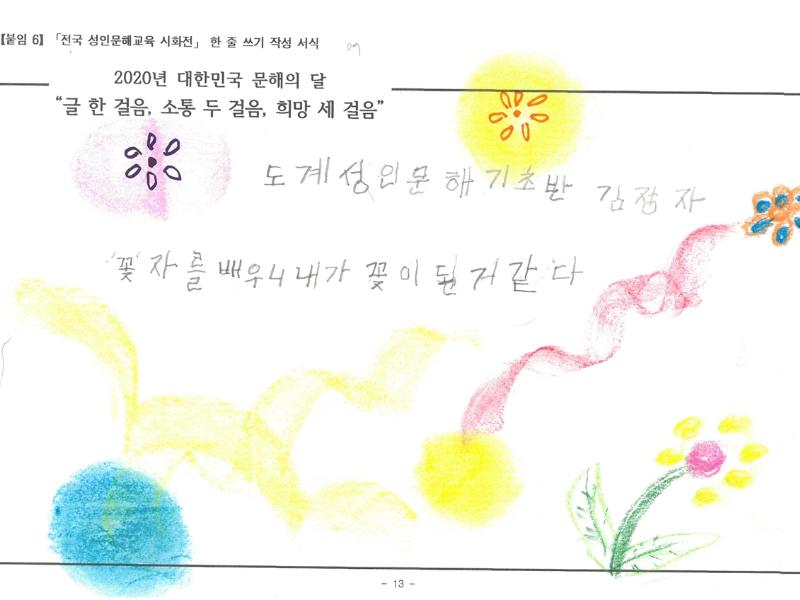 [붙임 6] 「전국 성인문해교육 시화전」 한 줄 쓰기 작성 서식
2020년 대한민국 문해의 달
“글 한 걸음, 소통 두 걸음, 희망 세 걸음”
도계성인문해기초반 김장자
'꽃'자를 배우니 내가 꽃이 된거 같다
- 13 -